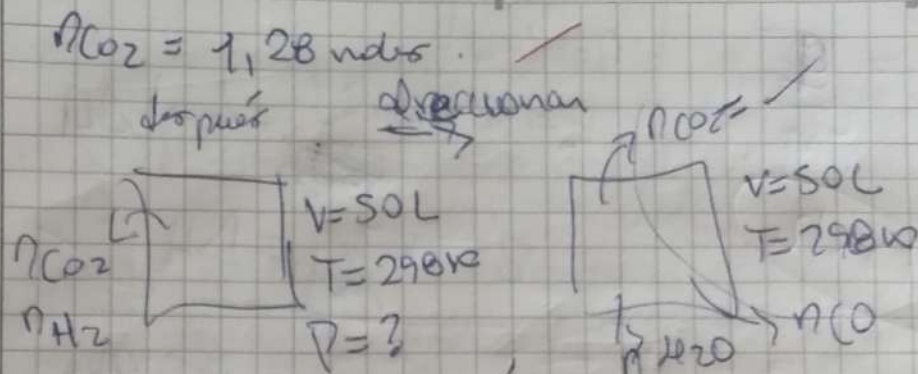 nCO2 = 1,28 moles.
después
reaccionan
nCO2=
V=50L
T=298K
P=?
nCO2
nH2
V=50L
T=298K
nCO
nH2O